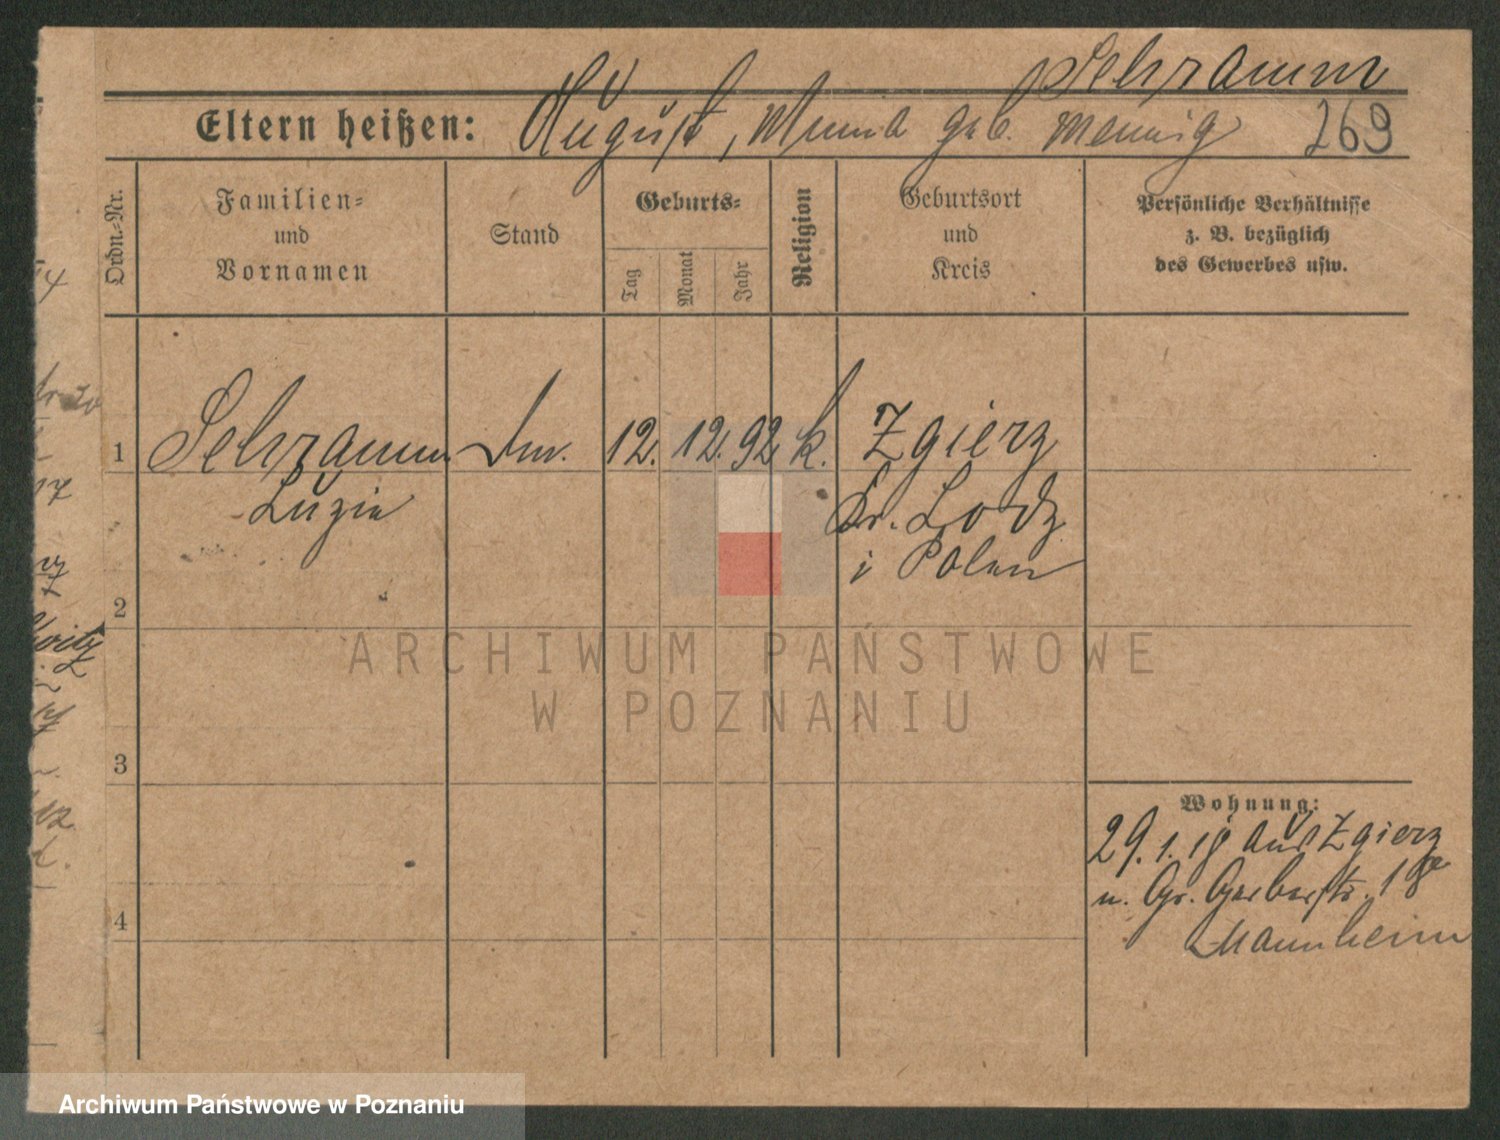 Schramm
Eltern heißen: August, geb. Mennig 269
Ordn.-Nr.
Familien-
und
Vornamen
Stand
Geburts-
Tag
Monat
Jahr
Religion
Geburtsort
und
Kreis
Persönliche Verhältnisse
z. B. bezüglich
des Gewerbes usw.
1 Schramm 12. 12. 92 k. Zgierz
Luzie Kr. Lodz
i Polen
2
3
4
Wohnung:
29.1.18 aus Zgierz
n. Gr. Gerberstr. 18
Mannheim
ARCHIWUM PAŃSTWOWE
W POZNANIU
Archiwum Państwowe w Poznaniu